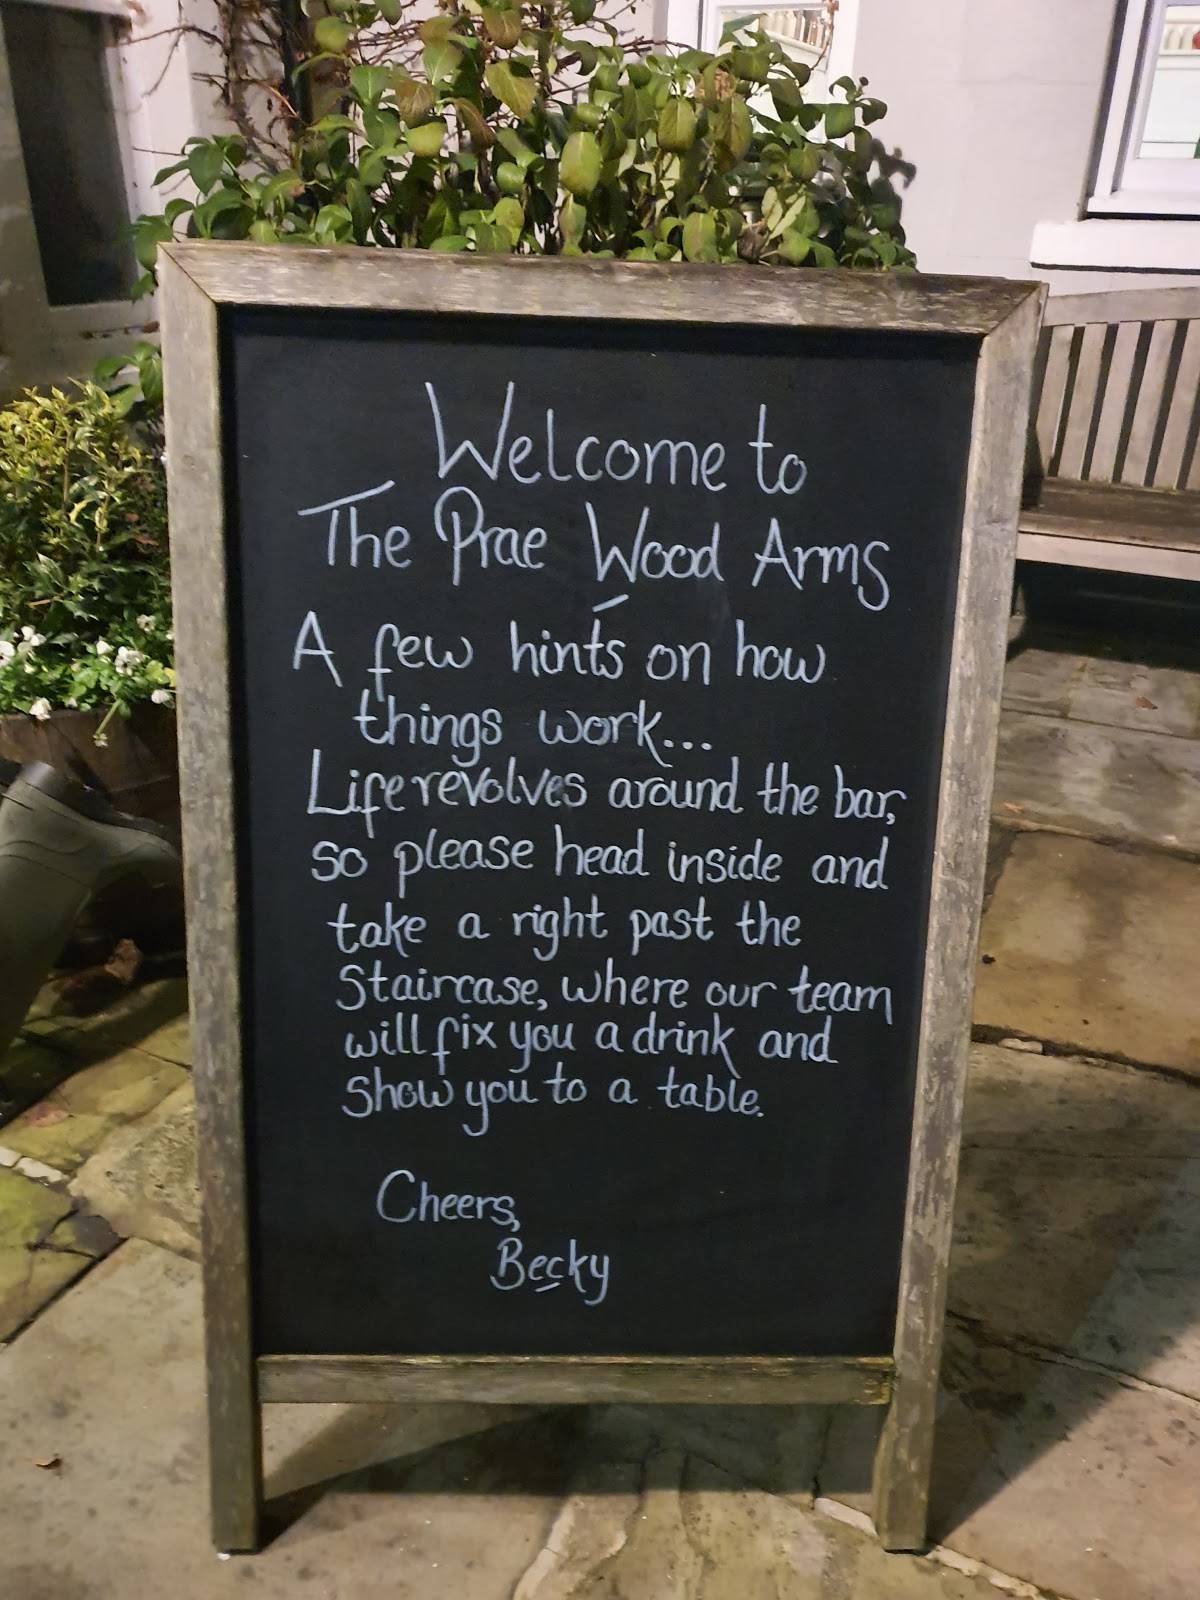 Welcome to
The Prae Wood Arms
A few hints on how
things work...
Life revolves around the bar,
so please head inside and
take a right past the
Staircase, where our team
will fix you a drink and
show you to a table.
Cheers,
Becky